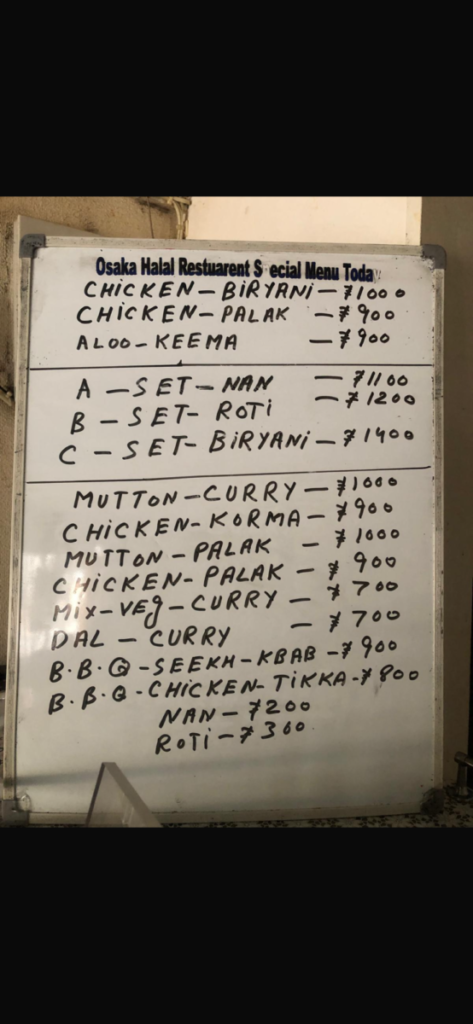 Osaka Halal Restuarent S ecial Menu Toda
CHICKEN - BIRYANI - ¥1000
CHICKEN - PALAK - ¥900
ALOO - KEEMA - ¥900
A - SET - NAN - ¥1100
B - SET - ROTI - ¥1200
C - SET - BIRYANI - ¥1400
MUTTON - CURRY - ¥1000
CHICKEN - KORMA - ¥900
MUTTON - PALAK - ¥1000
CHICKEN - PALAK - ¥900
MIX - VEg - CURRY - ¥700
DAL - CURRY - ¥700
B.B.Q - SEEKH - KBAB - ¥900
B.B.Q - CHICKEN - TIKKA - ¥800
NAN - ¥200
ROTI - ¥300